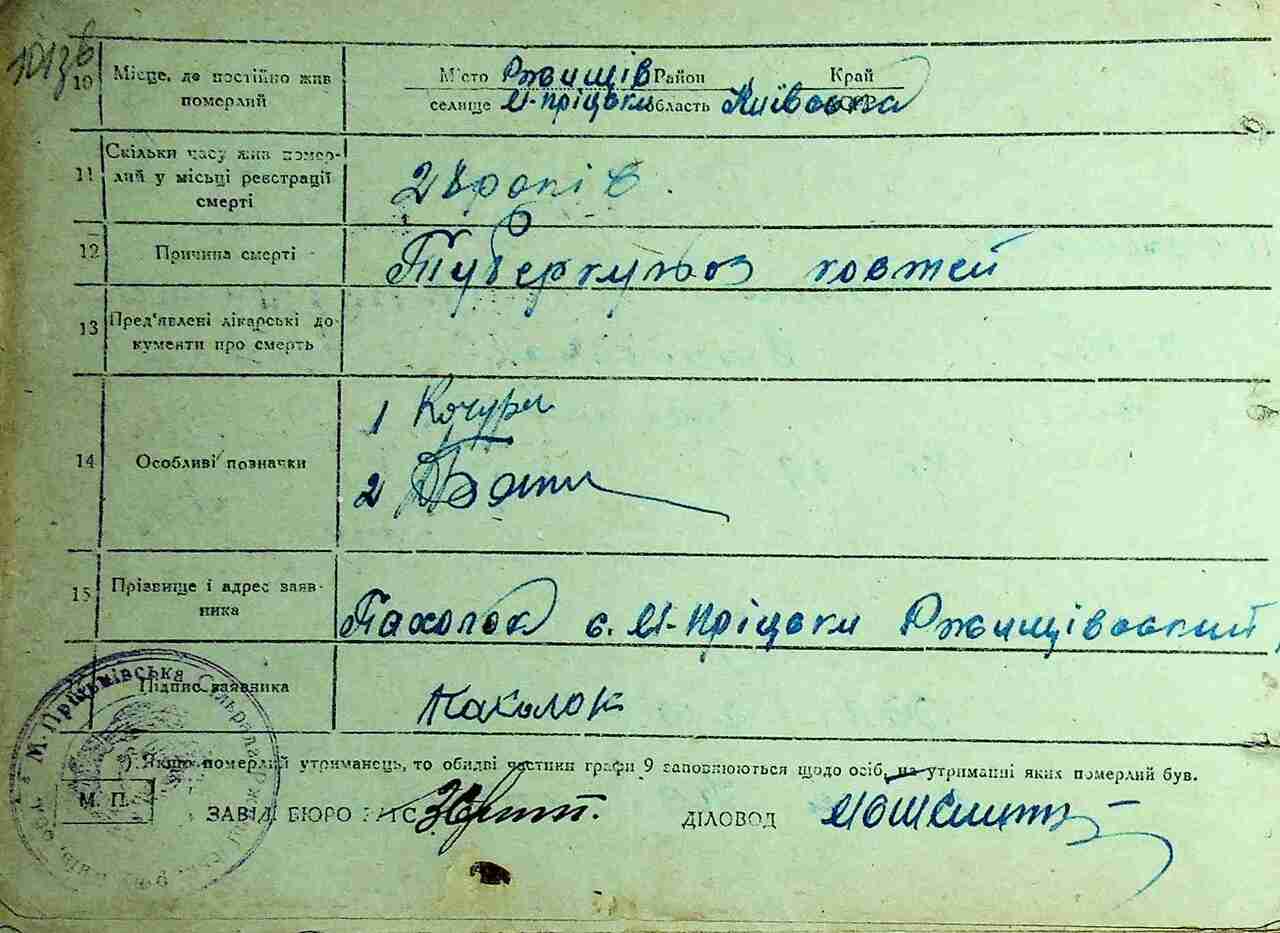 1013в
10 Місце, де постійно жив померлий
Місто Ржищів Район Край
селище М-Пріцьки область Київська
11 Скільки часу жив померлий у місці реєстрації смерті
28 років.
12 Причина смерті
Туберкульоз
13 Пред'явлені лікарські документи про смерть
14 Особливі позначки
1 Кочури
2
15 Прізвище і адрес заявника
Пахолок с. М-Пріцьки Ржищівський
Підпис заявника
Пахолок
М.-Прицьківська Сільрада
*) Якщо померлий утриманець, то обидві частини графи 9 заповнюються щодо осіб, на утриманні яких померлий був.
М. П.
ЗАВІД. БЮРО ЗАГС
ДІЛОВОД